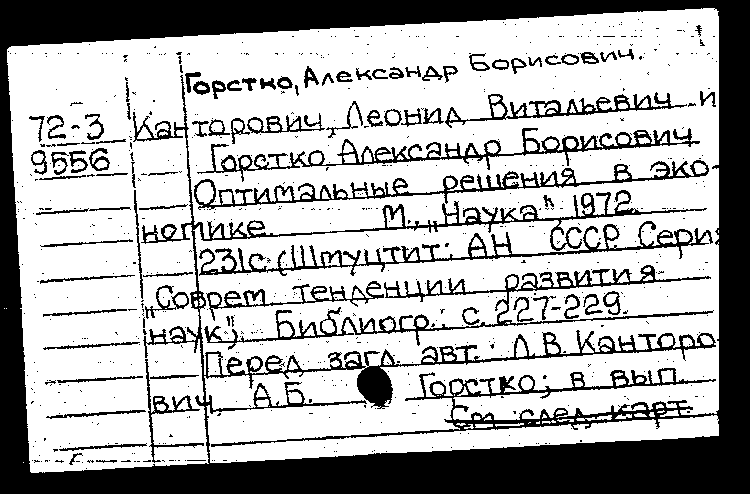 Горстко, Александр Борисович.
72-3 Канторович, Леонид Витальевич и
9556 Горстко, Александр Борисович
Оптимальные решения в эко-
номике. М., „Наука", 1972.
231с. (Штуцтит: АН СССР. Серия
„Соврем. тенденции развития
наук"). Библиогр.: с. 227-229.
Перед загл. авт.: Л.В. Канторо-
вич, А.Б. Горстко; в вып.
См. след. карт.